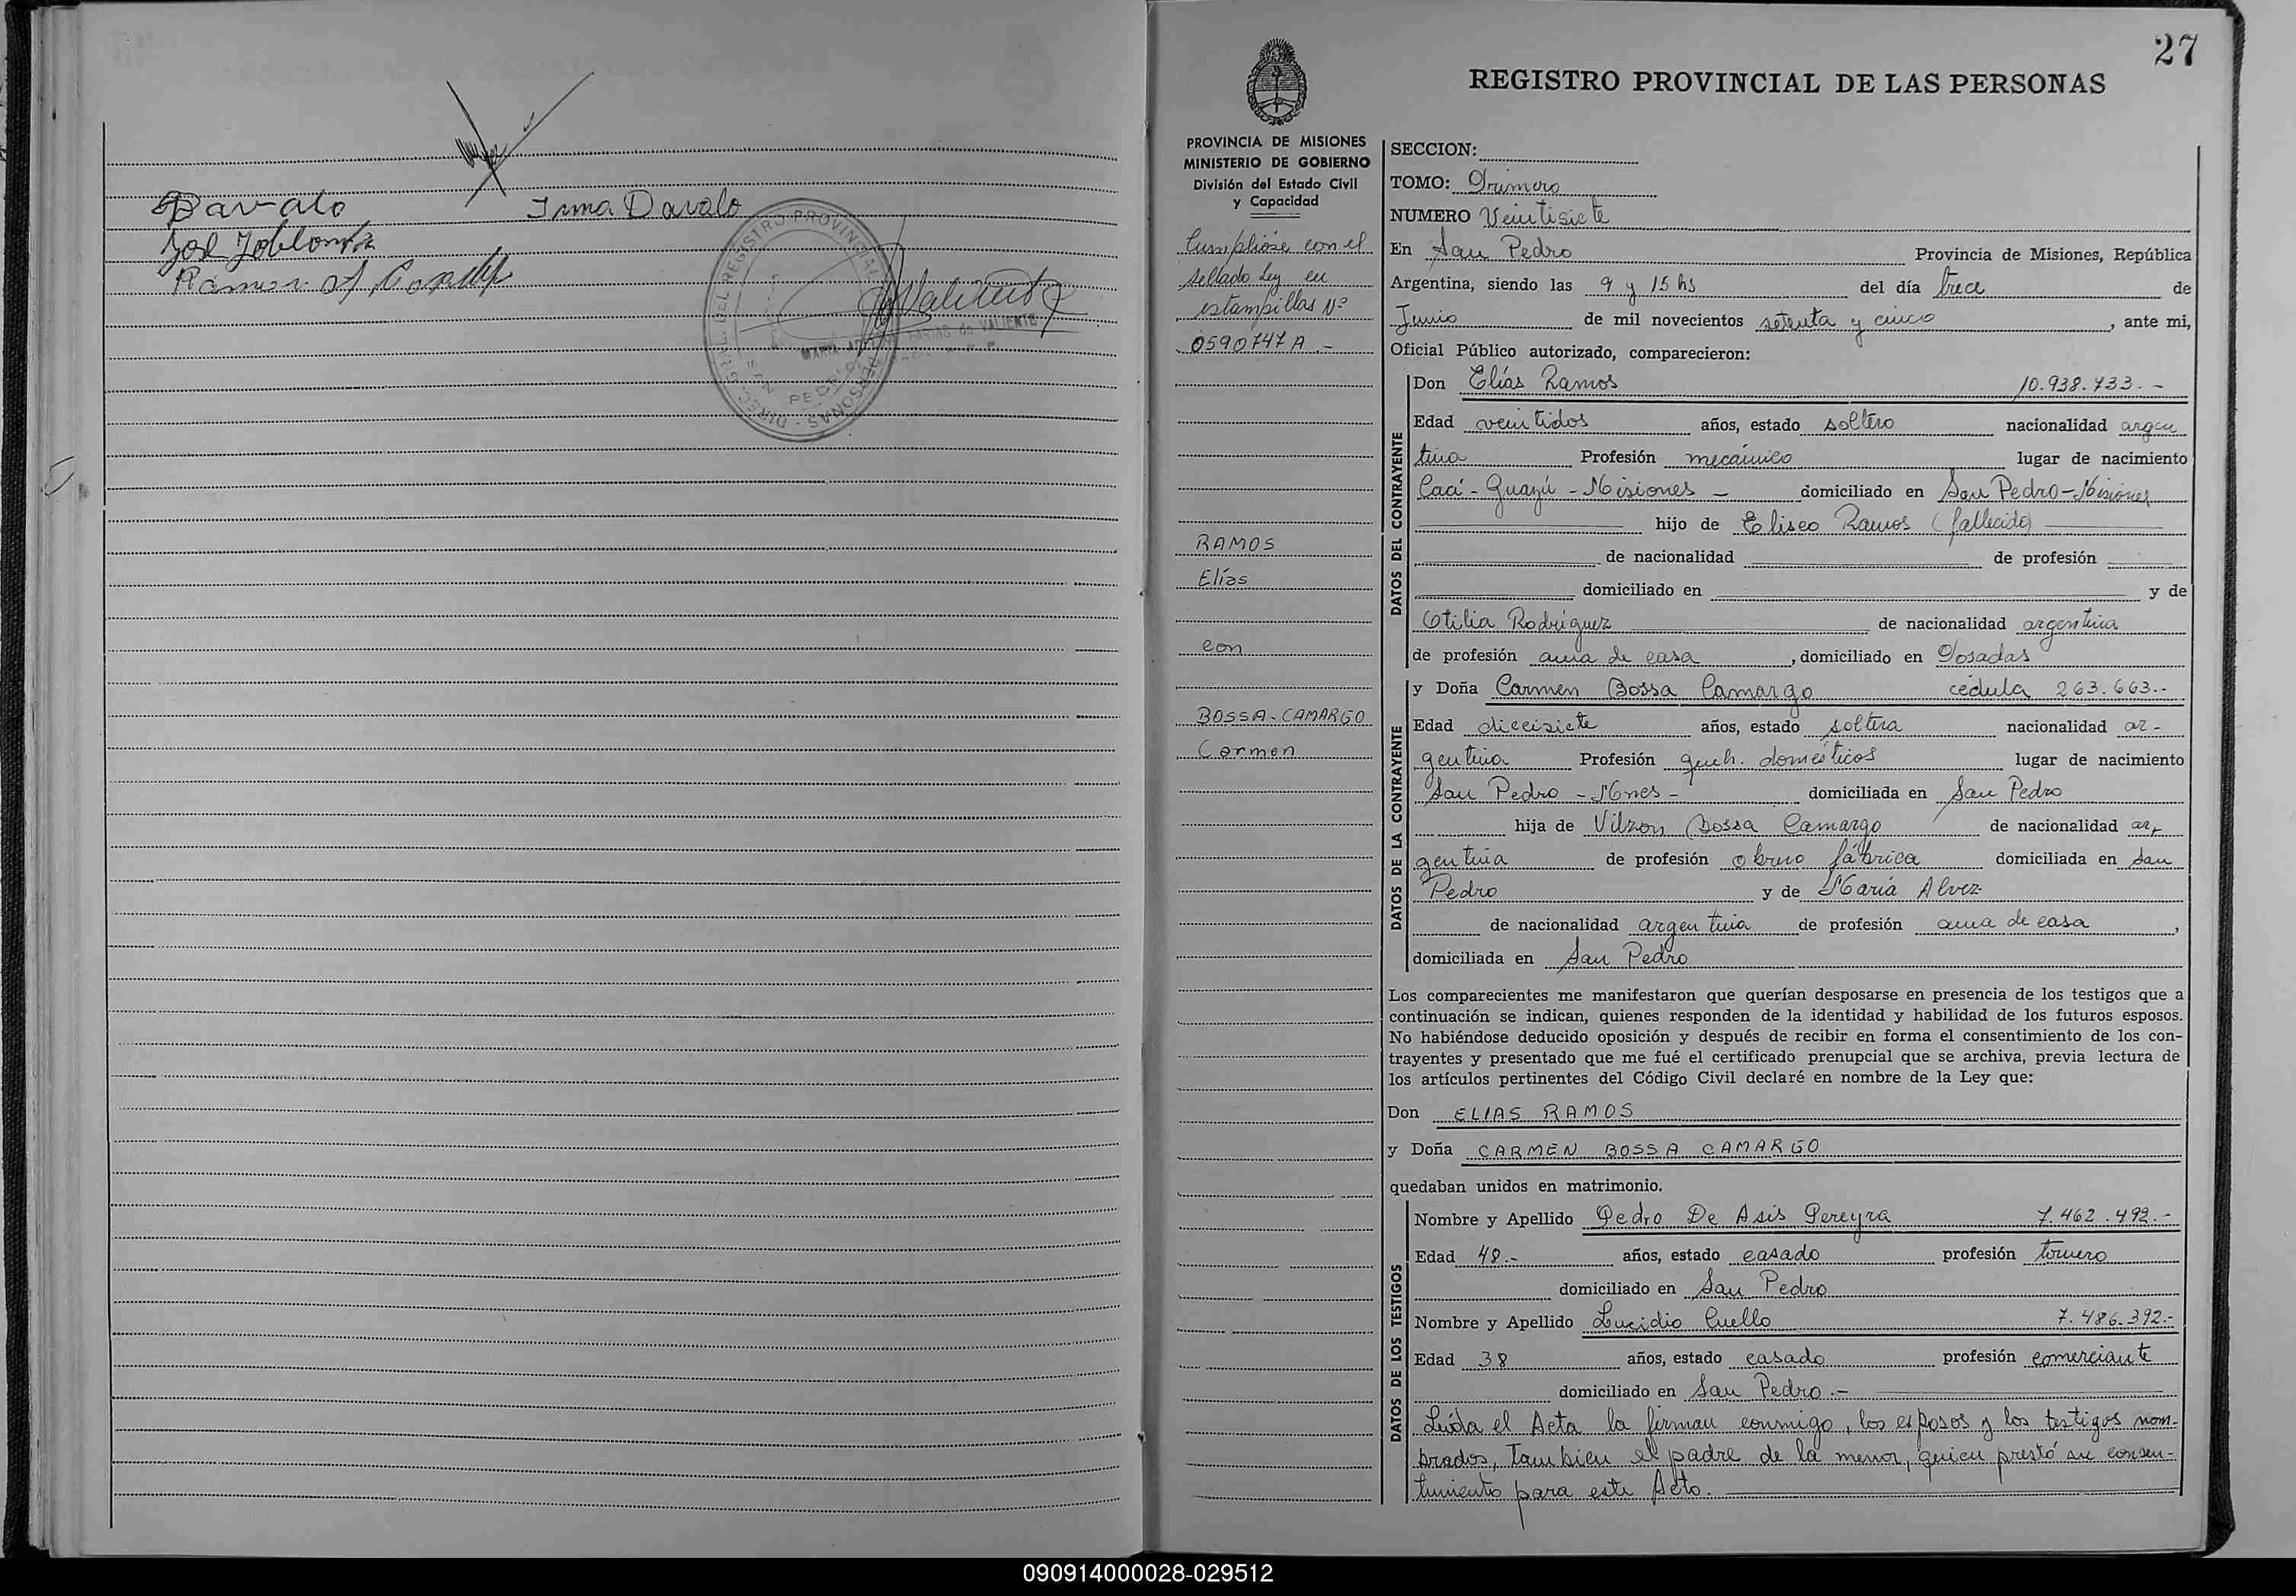 Davalo
Irma Davalo
DIREC. GRAL. DEL REGISTRO PROVINCIAL DE LAS PERSONAS
SAN PEDRO
MARIA de VALIENTE
27
REGISTRO PROVINCIAL DE LAS PERSONAS
PROVINCIA DE MISIONES
MINISTERIO DE GOBIERNO
División del Estado Civil
y Capacidad
Cumplióse con el
sellado Ley en
estampillas Nº
0590747 A.-
RAMOS
Elías
con
BOSSA-CAMARGO
Carmen
SECCION:
TOMO: Primero
NUMERO Veintisiete
En San Pedro Provincia de Misiones, República
Argentina, siendo las 9 y 15 hs del día trece de
Junio de mil novecientos setenta y cinco, ante mi,
Oficial Público autorizado, comparecieron:
DATOS DEL CONTRAYENTE
Don Elías Ramos 10.938.733.-
Edad veintidos años, estado soltero nacionalidad argen
tina Profesión mecánico lugar de nacimiento
Caá-Guazú - Misiones - domiciliado en San Pedro-Misiones
hijo de Eliseo Ramos (fallecido)
de nacionalidad de profesión
domiciliado en y de
Otilia Rodríguez de nacionalidad argentina
de profesión ama de casa, domiciliado en Posadas
DATOS DE LA CONTRAYENTE
y Doña Carmen Bossa Camargo cédula 263.663.-
Edad diecisiete años, estado soltera nacionalidad ar-
gentina Profesión queh. domésticos lugar de nacimiento
San Pedro - Mnes - domiciliada en San Pedro
hija de Vilzon Bossa Camargo de nacionalidad ar-
gentina de profesión obrero fábrica domiciliada en San
Pedro y de María Alvez
de nacionalidad argentina de profesión ama de casa,
domiciliada en San Pedro
Los comparecientes me manifestaron que querían desposarse en presencia de los testigos que a
continuación se indican, quienes responden de la identidad y habilidad de los futuros esposos.
No habiéndose deducido oposición y después de recibir en forma el consentimiento de los con-
trayentes y presentado que me fué el certificado prenupcial que se archiva, previa lectura de
los artículos pertinentes del Código Civil declaré en nombre de la Ley que:
Don ELIAS RAMOS
y Doña CARMEN BOSSA CAMARGO
quedaban unidos en matrimonio.
DATOS DE LOS TESTIGOS
Nombre y Apellido Pedro De Asis Pereyra 7.462.492.-
Edad 48.- años, estado casado profesión tornero
domiciliado en San Pedro
Nombre y Apellido Lucidio Cuello 7.486.392.-
Edad 38 años, estado casado profesión comerciante
domiciliado en San Pedro.-
Leída el Acta la firman conmigo, los esposos y los testigos nom-
brados, tambien el padre de la menor, quien prestó su consen-
timiento para este Acto.
090914000028-029512